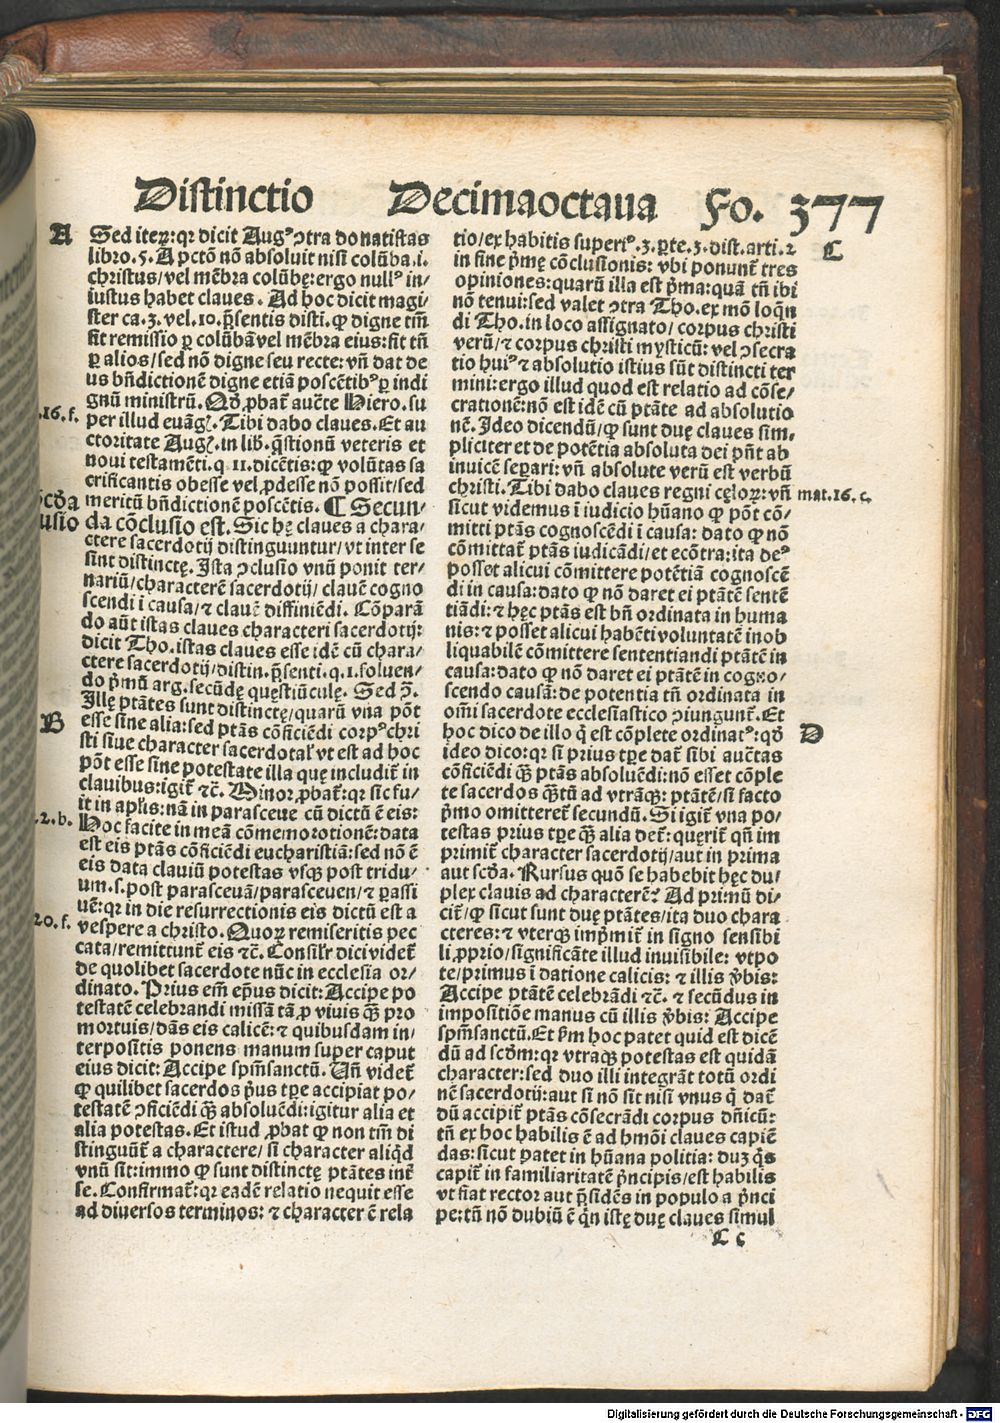 Distinctio Decimaoctaua Fo. 377
A
Sed iteꝝ: qꝛ dicit Augꝰ ↄtra donatistas
libro. 5. A pctō nō absoluit nisi colūba. i.
christus/ vel mēbra colūbę: ergo nullꝰ in/
iustus habet claues. Ad hoc dicit magi/
ster ca. 3. vel. 10. p̄sentis disti. ꝙ digne tm̄
fit remissio ꝑ colūbā vel mēbra eius: fit tn̄
ꝑ alios/ sed nō digne seu recte: vn̄ dat de
us bn̄dictionē digne etiā poscētibꝰ ꝑ indi
gnū ministrū. Qd̄ ꝓbat̄ aucte Hiero. su
.16. f.
per illud euāgꝭ. Tibi dabo claues. Et au
ctoritate Augꝭ. in lib̄. q̄stionū veteris et
noui testamēti. q. 11. dicētis: ꝙ volūtas sa
crificantis obesse vel ꝓdesse nō possit/ sed
cd̄a
meritū bn̄dictionē poscētis. ¶ Secun/
usio
da cōclusio est. Sic hę claues a chara/
ctere sacerdotij distinguuntur/ vt inter se
sint distinctę. Ista ↄclusio vnū ponit ter/
nariū/ characterē sacerdotij/ clauē cogno
scendi ī causa/ ⁊ clauē diffiniēdi. Cōparā
do aūt istas claues characteri sacerdotij:
dicit Tho. istas claues esse idē cū chara/
ctere sacerdotij/ distin. p̄senti. q. 1. soluen/
do p̄mū arg. secūdę quęstiūculę. Sed ꝯ̄.
Illę ptātes sunt distinctę/ quarū vna pōt
B
esse sine alia: sed ptās cōficiēdi corpꝰ chri
sti siue character sacerdotal̄ vt est ad hoc
pōt esse sine potestate illa quę includit̄ in
clauibus: igit̄ ⁊c̄. Minor ꝓbat̄: qꝛ sic fu/
it in apl̄is: nā in parasceue cū dictū ē eis:
.2. b.
Hoc facite in meā cōmemorotionē: data
est eis ptās cōficiēdi eucharistiā: sed nō ē
eis data clauiū potestas vsqꝫ post tridu/
um. s. post parasceuā/ parasceuen/ ⁊ ꝑassi
uē: qꝛ in die resurrectionis eis dictū est a
20. f.
vespere a christo. Quoꝝ remiseritis pec
cata/ remittunt̄ eis ⁊c̄. Consil̄r dici videt̄
de quolibet sacerdote nūc in ecclesia or/
dinato. Prius em̄ ep̄us dicit: Accipe po
testatē celebrandi missā tā ꝓ viuis qꝫ̄ pro
mortuis/ dās eis calicē: ⁊ quibusdam in/
terpositis ponens manum super caput
eius dicit: Accipe sp̄m̄sanctū. Un̄ videt̄
ꝙ quilibet sacerdos p̄us tꝑe accipiat po/
testatē ↄficiēdi qꝫ̄ absoluēdi: igitur alia et
alia potestas. Et istud ꝓbat ꝙ non tm̄ di
stinguūt̄ a charactere/ si character aliq̄d
vnū sit: immo ꝙ sunt distinctę ptātes int̄
se. Confirmat̄: qꝛ eadē relatio nequit esse
ad diuersos terminos: ⁊ character ē rela
tio/ ex habitis superiꝰ. 3. ꝑte. 3. dist. arti. 2
C
in fine p̄mę cōclusionis: vbi ponunt̄ tres
opiniones: quarū illa est p̄ma: quā tn̄ ibi
nō tenui: sed valet ↄtra Tho. ex mō loq̄n
di Tho. in loco assignato/ corpus christi
verū/ ⁊ corpus christi mysticū: vel ↄsecra
tio huiꝰ ⁊ absolutio istius sūt distincti ter
mini: ergo illud quod est relatio ad cōse/
crationē: nō est idē cū ptāte ad absolutio
nē. Ideo dicendū/ ꝙ sunt duę claues sim/
pliciter et de potētia absoluta dei pn̄t ab
inuicē seꝑari: vn̄ absolute verū est verbū
christi. Tibi dabo claues regni cęloꝝ: vn̄
mat. 16. c.
sicut videmus ī iudicio hūano ꝙ pōt cō/
mitti ptās cognoscēdi ī causa: dato ꝙ nō
cōmittat̄ ptās iudicādi/ et ecōtra: ita deꝰ
posset alicui cōmittere potētiā cognoscē
di in causa: dato ꝙ nō daret ei ptātē sentē
tiādi: ⁊ hęc ptās est bn̄ ordinata in huma
nis: ⁊ posset alicui habēti voluntatē inob
liquabilē cōmittere sententiandi ptātē in
causa: dato ꝙ nō daret ei ptātē in cogno/
scendo causā: de potentia tn̄ ordinata in
om̄i sacerdote ecclesiastico ↄiungunt̄. Et
hoc dico de illo q̄ est cōplete ordinatꝰ: qd̄
D
ideo dico: qꝛ si prius tꝑe dat̄ sibi auctas
cōficiēdi qꝫ̄ ptās absoluēdi: nō esset cōple
te sacerdos qꝫ̄tū ad vtrāqꝫ ptātē/ si facto
p̄mo omitteret̄ secundū. Si igit̄ vna po/
testas prius tꝑe qꝫ̄ alia det̄: quęrit̄ qn̄ im
primit̄ character sacerdotij/ aut in prima
aut scd̄a. Rursus quō se habebit hęc du/
plex clauis ad characterē? Ad primū di/
cit̄/ ꝙ sicut sunt duę ptātes/ ita duo chara
cteres: ⁊ vterqꝫ imp̄mit̄ in signo sensibi
li ꝓprio/ significāte illud inuisibile: vtpo
te/ primus ī datione calicis: ⁊ illis v̄bis:
Accipe ptātē celebrādi ⁊c̄. ⁊ secūdus in
impositiōe manus cū illis v̄bis: Accipe
sp̄m̄sanctū. Et ꝑm̄ hoc patet quid est dicē
dū ad scd̄m: qꝛ vtraqꝫ potestas est quidā
character: sed duo illi integrāt totū ordi
nē sacerdotij: aut si nō sit nisi vnus q̄ dat̄
dū accipit̄ ptās cōsecrādi corpus dn̄icū:
tn̄ ex hoc habilis ē ad hmōi claues capiē
das: sicut patet in hūana politia: dū q̄s
capit̄ in familiaritatē p̄ncipis/ est habilis
vt fiat rector aut p̄sidēs in populo a p̄nci
pe: tn̄ nō dubiū ē qn̄ istę duę claues simul
C c
Digitalisierung gefördert durch die Deutsche Forschungsgemeinschaft - DFG